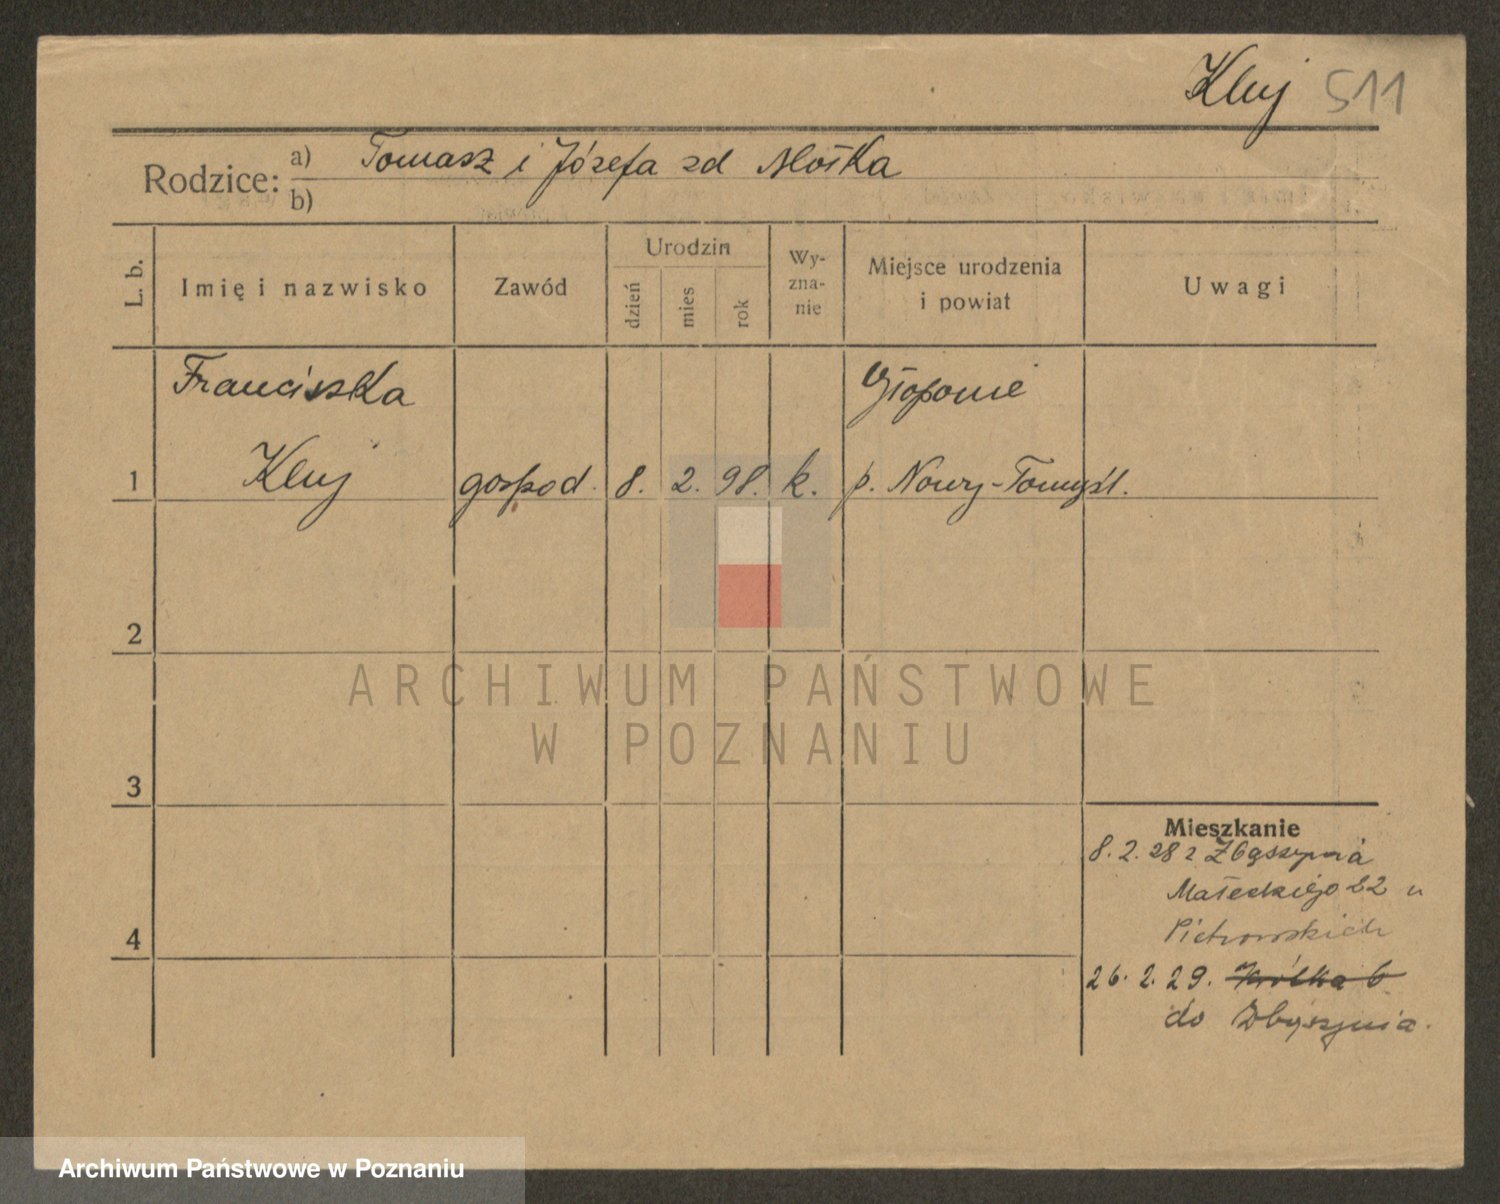 Kluj 511
Rodzice: a) Tomasz i Józefa zd Mośka
b)
L. b.
Imię i nazwisko
Zawód
Urodzin
dzień
mies
rok
Wy-
zna-
nie
Miejsce urodzenia
i powiat
Uwagi
Franciszka
Kluj
1
gospod.
8. 2. 98.
k.
p. Nowy-Tomyśl.
2
3
4
Mieszkanie
8.2.28 z Zbąszynia
Małeckiego 22 u
Piotrowskich
26. 2. 29. Krótka 6
do Zbąszynia.
ARCHIWUM PAŃSTWOWE
W POZNANIU
Archiwum Państwowe w Poznaniu